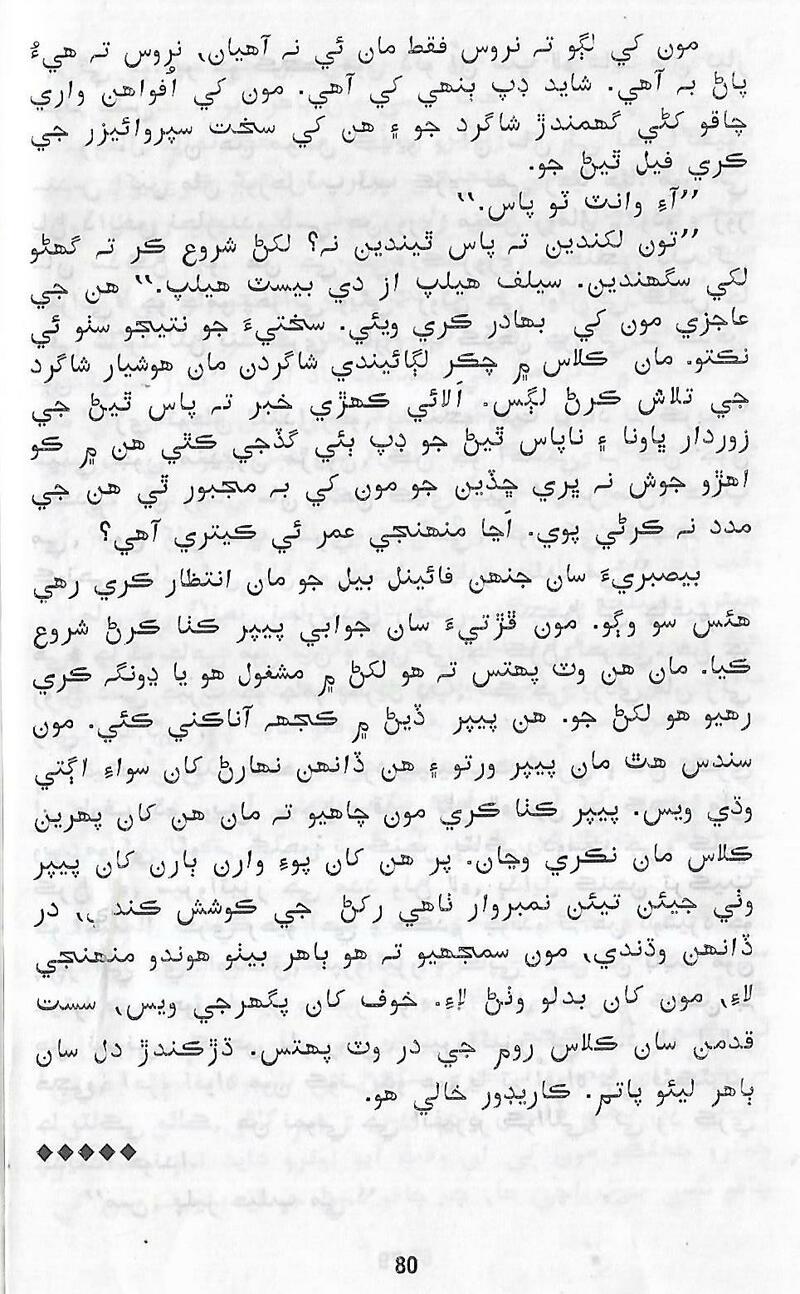 مون کي لڳو تہ نروس فقط مان ئي نہ آهيان، نروس تہ هيءُ
پاڻ بہ آهي. شايد ڊپ ٻنهي کي آهي. مون کي اُفواهن واري
چاقو کڻي گهمندڙ شاگرد جو ۽ هن کي سخت سپروائيزر جي
ڪري فيل ٿيڻ جو.
”آءِ وانٽ ٽو پاس.“
”تون لکندين تہ پاس ٿيندين نہ؟ لکڻ شروع ڪر تہ گهڻو
لکي سگهندين. سيلف هيلپ از دي بيسٽ هيلپ.“ هن جي
عاجزي مون کي بهادر ڪري ويئي. سختيءَ جو نتيجو سٺو ئي
نڪتو. مان ڪلاس ۾ چڪر لڳائيندي شاگردن مان هوشيار شاگرد
جي تلاش ڪرڻ لڳس. اَلائي ڪهڙي خبر تہ پاس ٿيڻ جي
زوردار ڀاونا ۽ ناپاس ٿيڻ جو ڊپ ٻئي گڏجي ڪٿي هن ۾ ڪو
اهڙو جوش نہ ڀري ڇڏين جو مون کي بہ مجبور ٿي هن جي
مدد نہ ڪرڻي پوي. اَڇا منهنجي عمر ئي ڪيتري آهي؟
بيصبريءَ سان جنهن فائينل بيل جو مان انتظار ڪري رهي
هئس سو وڳو. مون ڦڙتيءَ سان جوابي پيپر ڪٺا ڪرڻ شروع
ڪيا. مان هن وٽ پهتس تہ هو لکڻ ۾ مشغول هو يا ڍونگہ ڪري
رهيو هو لکڻ جو. هن پيپر ڏيڻ ۾ ڪجهہ آناڪني ڪئي. مون
سندس هٿ مان پيپر ورتو ۽ هن ڏانهن نهارڻ کان سواءِ اڳتي
وڌي ويس. پيپر ڪٺا ڪري مون چاهيو تہ مان هن کان پهرين
ڪلاس مان نڪري وڃان. پر هن کان پوءِ وارن ٻارن کان پيپر
وٺي جيئن تيئن نمبروار ٺاهي رکڻ جي ڪوشش ڪندي، در
ڏانهن وڌندي، مون سمجهيو تہ هو ٻاهر بيٺو هوندو منهنجي
لاءِ، مون کان بدلو وٺڻ لاءِ. خوف کان پگهرجي ويس، سست
قدمن سان ڪلاس روم جي در وٽ پهتس. ڌڙڪندڙ دل سان
ٻاهر ليئو پاتم. ڪاريڊور خالي هو.
◆◆◆◆◆
80